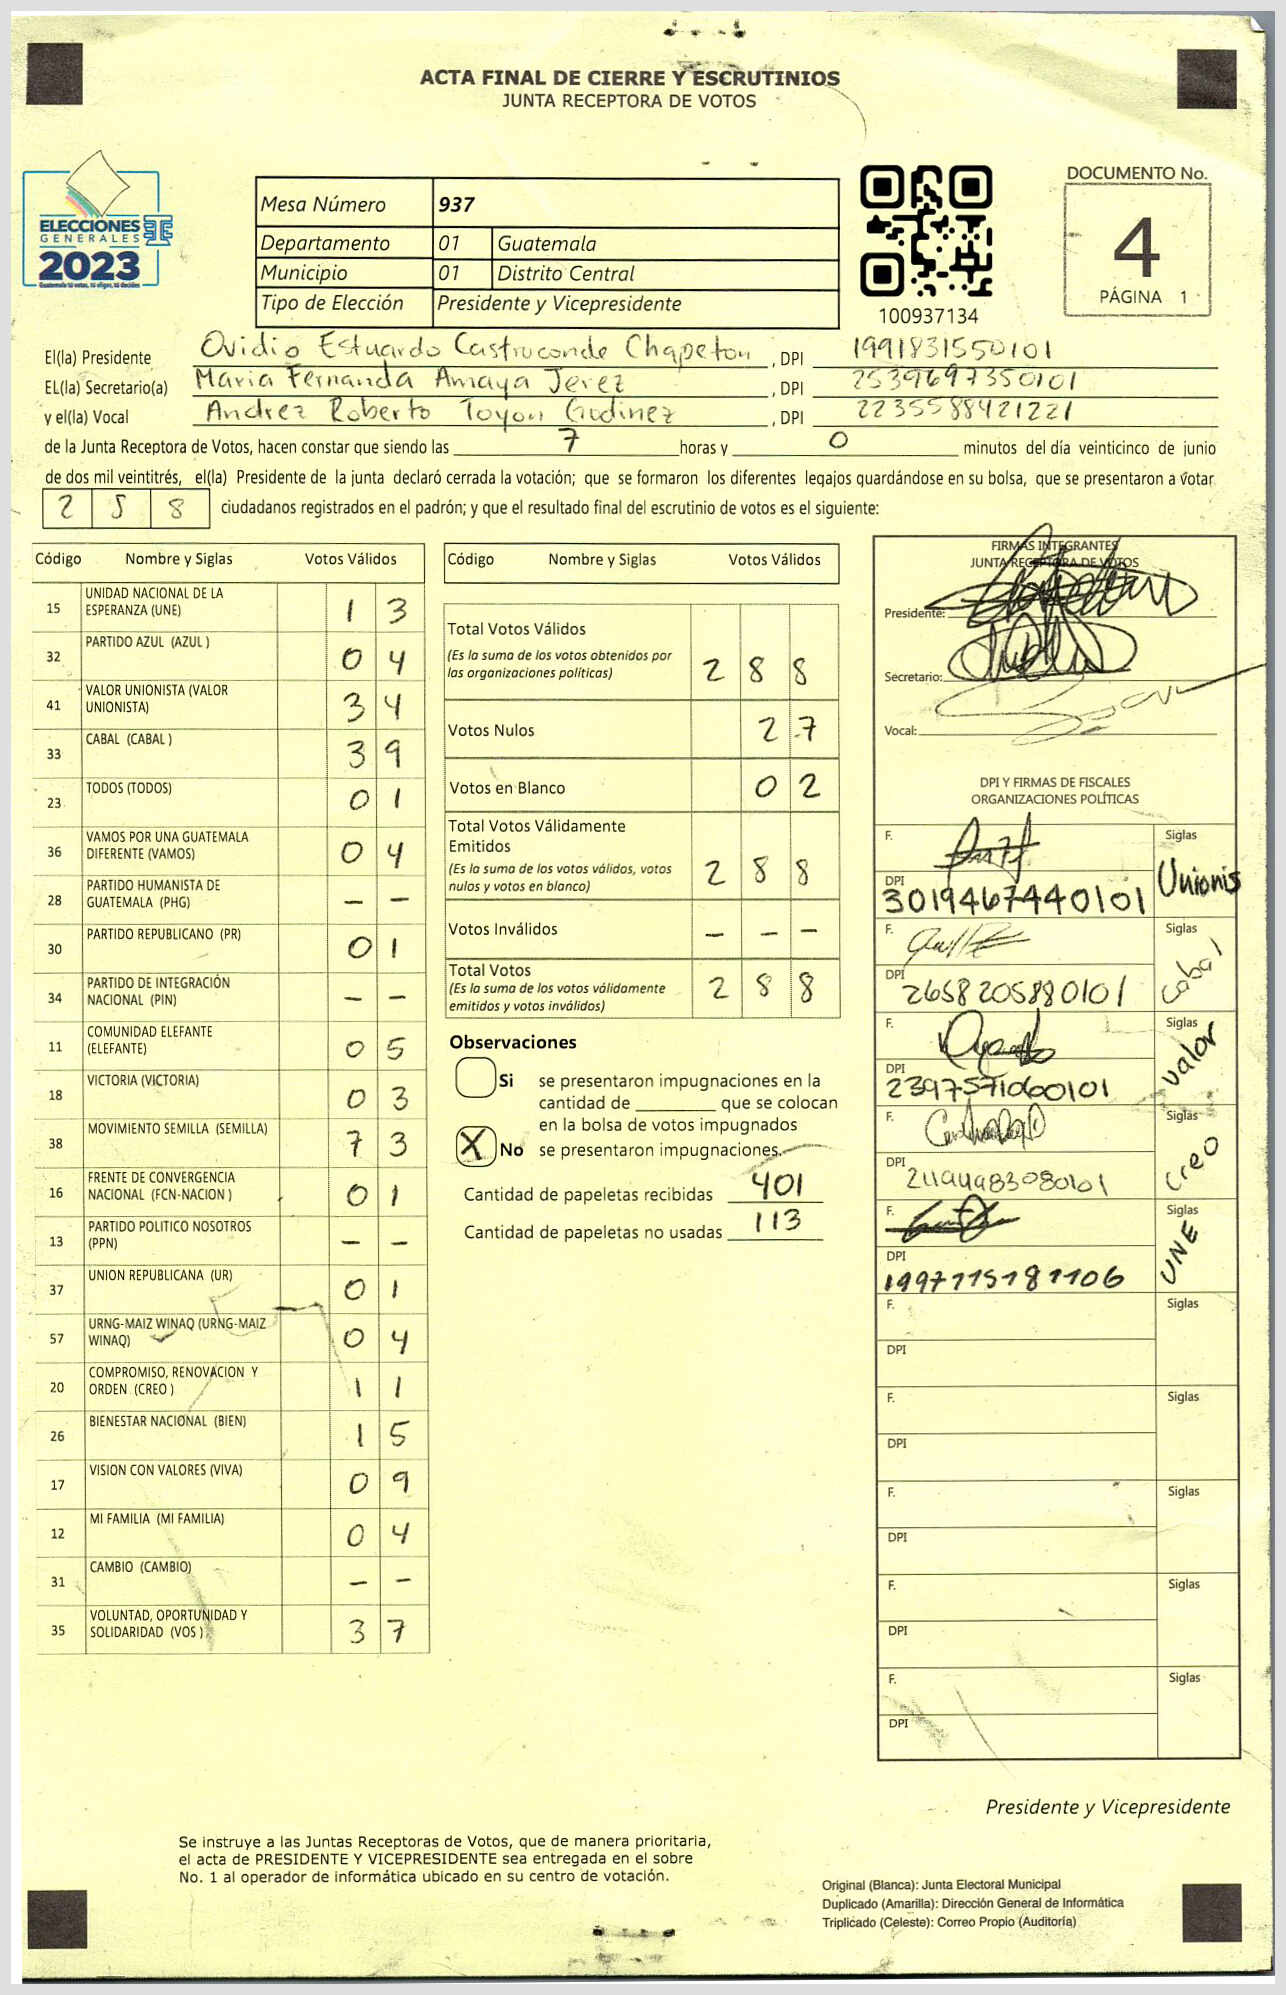 ACTA FINAL DE CIERRE Y ESCRUTINIOS
JUNTA RECEPTORA DE VOTOS
ELECCIONES
GENERALES
2023
Guatemala tú votas, tú eliges, tú decides
Mesa Número 937
Departamento 01 Guatemala
Municipio 01 Distrito Central
Tipo de Elección Presidente y Vicepresidente
100937134
DOCUMENTO No.
4
PÁGINA 1
El(la) Presidente Ovidio Estuardo Castroconde Chapeton, DPI 1991831550101
EL(la) Secretario(a) Maria Fernanda Amaya Jerez, DPI 2539697350101
y el(la) Vocal Andrez Roberto Toyon Godinez, DPI 2235588421221
de la Junta Receptora de Votos, hacen constar que siendo las 7 horas y 0 minutos del día veinticinco de junio
de dos mil veintitrés, el(la) Presidente de la junta declaró cerrada la votación; que se formaron los diferentes legajos guardándose en su bolsa, que se presentaron a votar
258 ciudadanos registrados en el padrón; y que el resultado final del escrutinio de votos es el siguiente:
Código Nombre y Siglas Votos Válidos
15 UNIDAD NACIONAL DE LA ESPERANZA (UNE) 1 3
32 PARTIDO AZUL (AZUL ) 0 4
41 VALOR UNIONISTA (VALOR UNIONISTA) 3 4
33 CABAL (CABAL ) 3 9
23 TODOS (TODOS) 0 1
36 VAMOS POR UNA GUATEMALA DIFERENTE (VAMOS) 0 4
28 PARTIDO HUMANISTA DE GUATEMALA (PHG) – –
30 PARTIDO REPUBLICANO (PR) 0 1
34 PARTIDO DE INTEGRACIÓN NACIONAL (PIN) – –
11 COMUNIDAD ELEFANTE (ELEFANTE) 0 5
18 VICTORIA (VICTORIA) 0 3
38 MOVIMIENTO SEMILLA (SEMILLA) 7 3
16 FRENTE DE CONVERGENCIA NACIONAL (FCN-NACION ) 0 1
13 PARTIDO POLITICO NOSOTROS (PPN) – –
37 UNION REPUBLICANA (UR) 0 1
57 URNG-MAIZ WINAQ (URNG-MAIZ WINAQ) 0 4
20 COMPROMISO, RENOVACION Y ORDEN (CREO ) 1 1
26 BIENESTAR NACIONAL (BIEN) 1 5
17 VISION CON VALORES (VIVA) 0 9
12 MI FAMILIA (MI FAMILIA) 0 4
31 CAMBIO (CAMBIO) – –
35 VOLUNTAD, OPORTUNIDAD Y SOLIDARIDAD (VOS ) 3 7
Código Nombre y Siglas Votos Válidos
Total Votos Válidos
(Es la suma de los votos obtenidos por
las organizaciones políticas) 2 8 8
Votos Nulos 2 7
Votos en Blanco 0 2
Total Votos Válidamente
Emitidos
(Es la suma de los votos válidos, votos
nulos y votos en blanco) 2 8 8
Votos Inválidos – – –
Total Votos
(Es la suma de los votos válidamente
emitidos y votos inválidos) 2 8 8
Observaciones
Si se presentaron impugnaciones en la
cantidad de ________ que se colocan
en la bolsa de votos impugnados
X No se presentaron impugnaciones.
Cantidad de papeletas recibidas 401
Cantidad de papeletas no usadas 113
FIRMAS INTEGRANTES
JUNTA RECEPTORA DE VOTOS
Presidente:
Secretario:
Vocal:
DPI Y FIRMAS DE FISCALES
ORGANIZACIONES POLÍTICAS
F. Siglas
DPI 3019467440101 Unionis
F. Siglas
DPI 2658205880101 Cabal
F. Siglas
DPI 2397571060101 Valor
F. Siglas
DPI 21194983080101 Creo
F. Siglas
DPI 1997115181106 UNE
F. Siglas
DPI
F. Siglas
DPI
F. Siglas
DPI
F. Siglas
DPI
F. Siglas
DPI
Presidente y Vicepresidente
Se instruye a las Juntas Receptoras de Votos, que de manera prioritaria,
el acta de PRESIDENTE Y VICEPRESIDENTE sea entregada en el sobre
No. 1 al operador de informática ubicado en su centro de votación.
Original (Blanca): Junta Electoral Municipal
Duplicado (Amarilla): Dirección General de Informática
Triplicado (Celeste): Correo Propio (Auditoría)